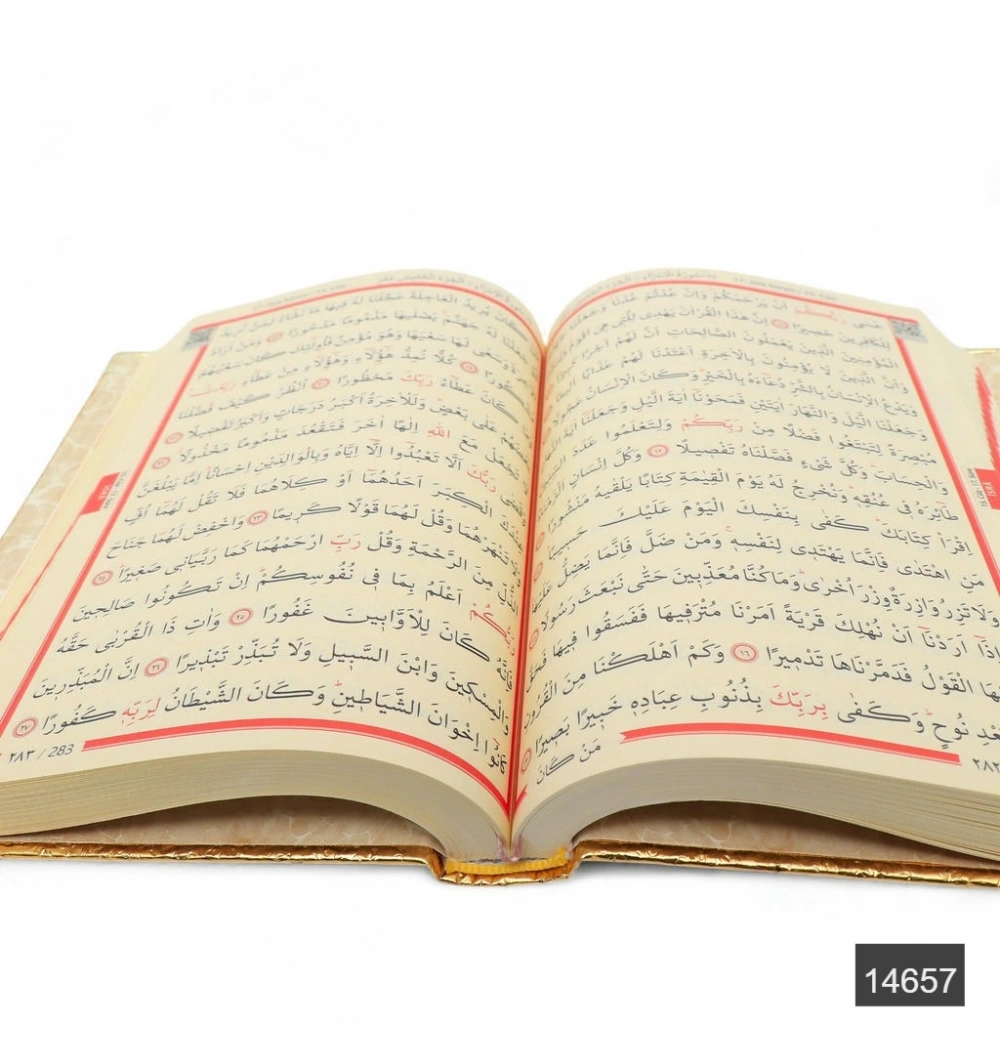 عَسٰى رَبُّكُمْ اَنْ يَرْحَمَكُمْ وَاِنْ عُدْتُمْ عُدْنَا وَجَعَلْنَا
لِلْكَافِرِينَ حَصِيرًا ۞ اِنَّ هٰذَا الْقُرْاٰنَ يَهْدِى لِلَّتِى هِىَ
الْمُؤْمِنِينَ الَّذِينَ يَعْمَلُونَ الصَّالِحَاتِ اَنَّ لَهُمْ اَجْرًا
وَاَنَّ الَّذِينَ لَا يُؤْمِنُونَ بِالْاٰخِرَةِ اَعْتَدْنَا لَهُمْ عَذَابًا
وَيَدْعُ الْاِنْسَانُ بِالشَّرِّ دُعَاءَهُ بِالْخَيْرِ وَكَانَ الْاِنْسَانُ
وَجَعَلْنَا الَّيْلَ وَالنَّهَارَ اٰيَتَيْنِ فَمَحَوْنَا اٰيَةَ الَّيْلِ وَجَعَلْنَا اٰيَةَ
مُبْصِرَةً لِتَبْتَغُوا فَضْلًا مِنْ رَبِّكُمْ وَلِتَعْلَمُوا عَدَدَ
وَالْحِسَابَ وَكُلَّ شَىْءٍ فَصَّلْنَاهُ تَفْصِيلًا ١٢ وَكُلَّ اِنْسَانٍ
طَائِرَهُ فِى عُنُقِهِ وَنُخْرِجُ لَهُ يَوْمَ الْقِيٰمَةِ كِتَابًا يَلْقٰيهُ مَنْشُورًا
اِقْرَاْ كِتَابَكَ كَفٰى بِنَفْسِكَ الْيَوْمَ عَلَيْكَ حَسِيبًا
مَنِ اهْتَدٰى فَاِنَّمَا يَهْتَدِى لِنَفْسِهِ وَمَنْ ضَلَّ فَاِنَّمَا يَضِلُّ عَلَيْهَا
وَلَا تَزِرُ وَازِرَةٌ وِزْرَ اُخْرٰى وَمَا كُنَّا مُعَذِّبِينَ حَتّٰى نَبْعَثَ رَسُولًا
اِذَا اَرَدْنَا اَنْ نُهْلِكَ قَرْيَةً اَمَرْنَا مُتْرَفِيهَا فَفَسَقُوا فِيهَا فَحَقَّ
الْقَوْلُ فَدَمَّرْنَاهَا تَدْمِيرًا ١٦ وَكَمْ اَهْلَكْنَا مِنَ الْقُرُونِ
نُوحٍ وَكَفٰى بِرَبِّكَ بِذُنُوبِ عِبَادِهِ خَبِيرًا بَصِيرًا
مَنْ كَانَ
٢٨٢
كَانَ يُرِيدُ الْعَاجِلَةَ عَجَّلْنَا لَهُ فِيهَا مَا نَشَاءُ لِمَنْ نُرِيدُ
جَعَلْنَا لَهُ جَهَنَّمَ يَصْلٰيهَا مَذْمُومًا مَدْحُورًا وَمَنْ اَرَادَ
وَسَعٰى لَهَا سَعْيَهَا وَهُوَ مُؤْمِنٌ فَاُولٰئِكَ كَانَ سَعْيُهُمْ
كُلًّا نُمِدُّ هٰؤُلَاءِ وَهٰؤُلَاءِ مِنْ عَطَاءِ رَبِّكَ
كَانَ عَطَاءُ رَبِّكَ مَحْظُورًا اُنْظُرْ كَيْفَ فَضَّلْنَا
عَلٰى بَعْضٍ وَلَلْاٰخِرَةُ اَكْبَرُ دَرَجَاتٍ وَاَكْبَرُ تَفْضِيلًا
تَجْعَلْ مَعَ اللّٰهِ اِلٰهًا اٰخَرَ فَتَقْعُدَ مَذْمُومًا مَخْذُولًا
رَبُّكَ اَلَّا تَعْبُدُوا اِلَّا اِيَّاهُ وَبِالْوَالِدَيْنِ اِحْسَانًا اِمَّا يَبْلُغَنَّ
الْكِبَرَ اَحَدُهُمَا اَوْ كِلَاهُمَا فَلَا تَقُلْ لَهُمَا اُفٍّ
تَنْهَرْهُمَا وَقُلْ لَهُمَا قَوْلًا كَرِيمًا ٢٣ وَاخْفِضْ لَهُمَا جَنَاحَ
مِنَ الرَّحْمَةِ وَقُلْ رَبِّ ارْحَمْهُمَا كَمَا رَبَّيَانِى صَغِيرًا ٢٤
رَبُّكُمْ اَعْلَمُ بِمَا فِى نُفُوسِكُمْ اِنْ تَكُونُوا صَالِحِينَ
فَاِنَّهُ كَانَ لِلْاَوَّابِينَ غَفُورًا ٢٥ وَاٰتِ ذَا الْقُرْبٰى حَقَّهُ
وَالْمِسْكِينَ وَابْنَ السَّبِيلِ وَلَا تُبَذِّرْ تَبْذِيرًا ٢٦ اِنَّ الْمُبَذِّرِينَ
كَانُوا اِخْوَانَ الشَّيَاطِينِ وَكَانَ الشَّيْطَانُ لِرَبِّهِ كَفُورًا ٢٧
٢٨٣ / 283
14657